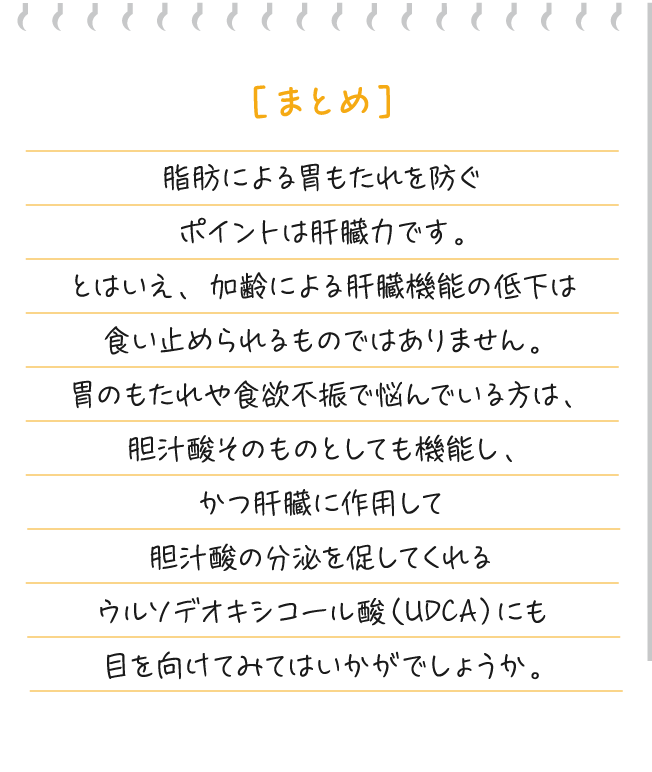 [まとめ]
脂肪による胃もたれを防ぐ
ポイントは肝臓力です。
とはいえ、加齢による肝臓機能の低下は
食い止められるものではありません。
胃のもたれや食欲不振で悩んでいる方は、
胆汁酸そのものとしても機能し、
かつ肝臓に作用して
胆汁酸の分泌を促してくれる
ウルソデオキシコール酸(UDCA)にも
目を向けてみてはいかがでしょうか。